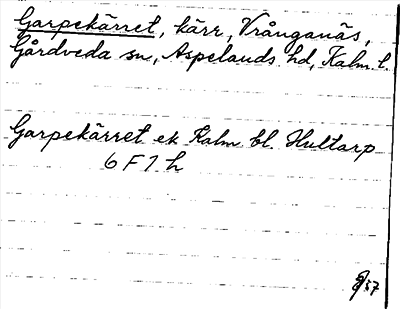 Garpekärret, kärr, Vrånganäs,
Gårdveda sn, Aspelands hd, Kalm. l.
Garpekärret ek Kalm bl. Hultarp
6 F 7 h
57